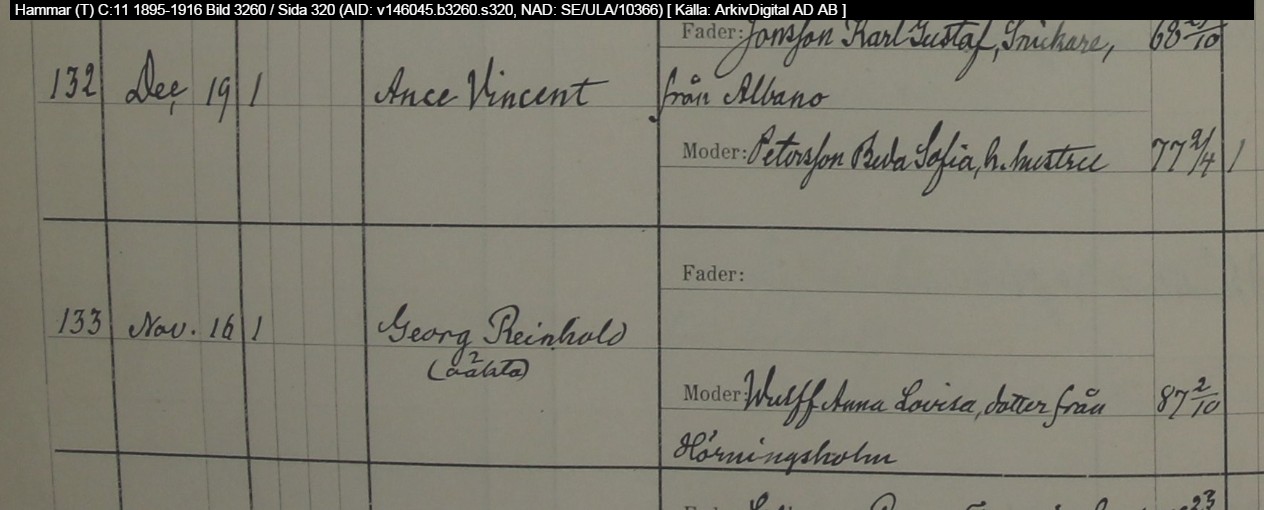 Hammar (T) C:11 1895-1916 Bild 3260 / Sida 320 (AID: v146045.b3260.s320, NAD: SE/ULA/10366) [ Källa: ArkivDigital AD AB ]
Fader: Jonsson Karl Gustaf, Snickare, 68 /10
132 Dec. 19 1 Ance Vincent från Albano
Moder: Petersson Beda Sofia, h. hustru 77 2/4 1
Fader:
133 Nov. 16 1 Georg Reinhold
(oäkta)
Moder: Wulff Anna Lovisa, dotter från 87 2/10
Hörningsholm
23